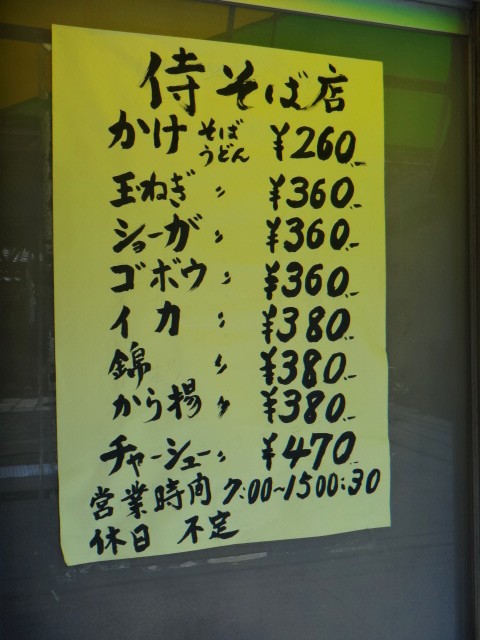 侍そば店
かけ そば うどん ¥260.-
玉ねぎ 〃 ¥360.-
ショーガ 〃 ¥360.-
ゴボウ 〃 ¥360.-
イカ 〃 ¥380.-
錦 〃 ¥380.-
から揚 〃 ¥380.-
チャーシュー 〃 ¥470.-
営業時間 7:00~1500:30
休日 不定